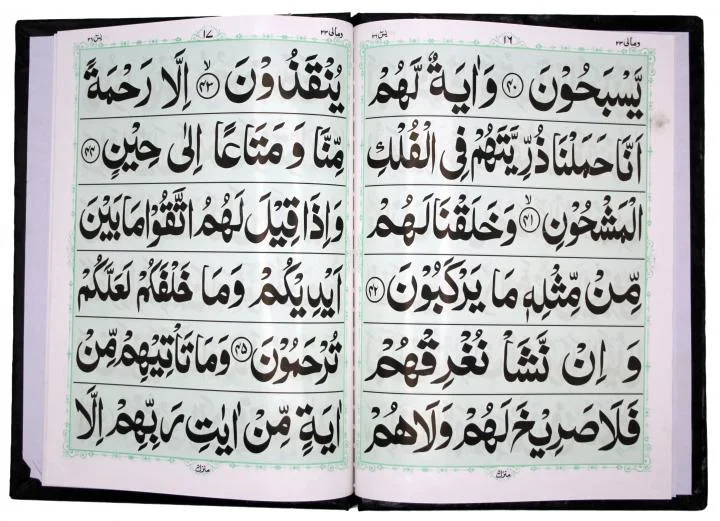 ومالی ۲۳ ۱۶ یٰسٓ ۳۶
یَّسْبَحُوْنَ ﴿۴۰﴾ وَاٰیَةٌ لَّهُمْ
اَنَّا حَمَلْنَا ذُرِّیَّتَهُمْ فِی الْفُلْكِ
الْمَشْحُوْنِ ﴿۴۱﴾ۙ وَخَلَقْنَا لَهُمْ
مِّنْ مِّثْلِهٖ مَا یَرْكَبُوْنَ ﴿۴۲﴾
وَ اِنْ نَّشَاْ نُغْرِقْهُمْ
فَلَا صَرِیْخَ لَهُمْ وَلَا هُمْ
منزل
ومالی ۲۳ ۱۷ یٰسٓ ۳۶
یُنْقَذُوْنَ ﴿۴۳﴾ۙ اِلَّا رَحْمَةً
مِّنَّا وَ مَتَاعًا اِلٰی حِیْنٍ ﴿۴۴﴾
وَاِذَا قِیْلَ لَهُمُ اتَّقُوْا مَا بَیْنَ
اَیْدِیْكُمْ وَمَا خَلْفَكُمْ لَعَلَّكُمْ
تُرْحَمُوْنَ ﴿۴۵﴾ وَمَا تَاْتِیْهِمْ مِّنْ
اٰیَةٍ مِّنْ اٰیٰتِ رَبِّهِمْ اِلَّا
منزل